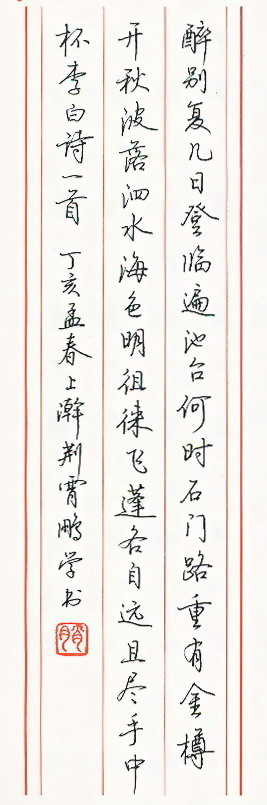 醉别复几日登临遍池台何时石门路重有金樽
开秋波落泗水海色明徂徕飞蓬各自远且尽手中
杯李白诗一首 丁亥孟春上澣荆霄鹏学书